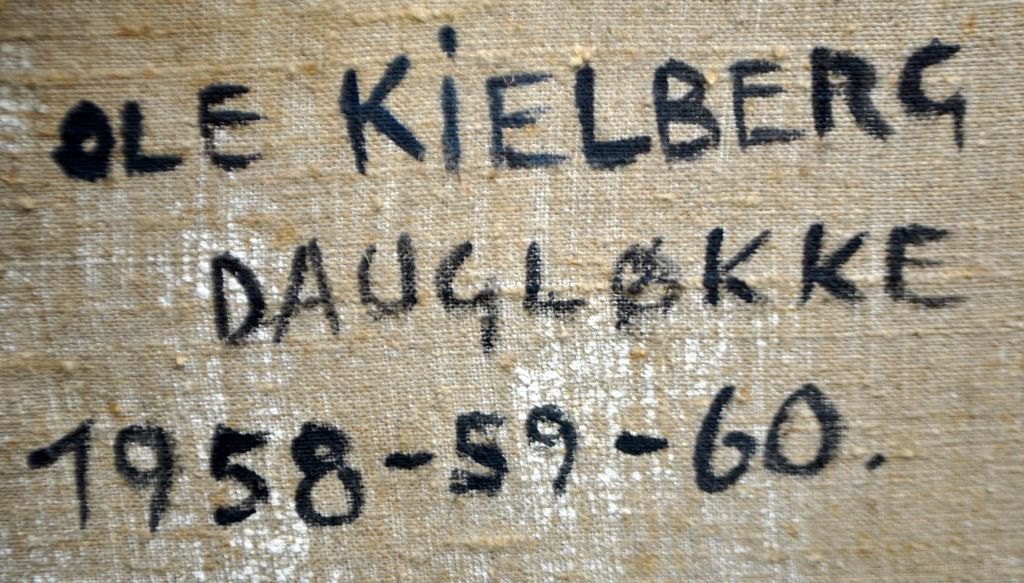 OLE KiELBERG
DAUGLØKKE
1958-59-60.